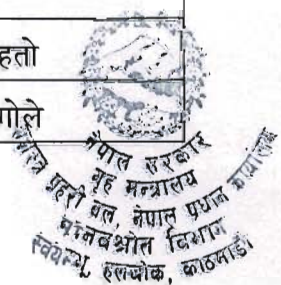 हतो
गोले
नेपाल सरकार
गृह मन्त्रालय
सशस्त्र प्रहरी बल, नेपाल प्रधान कार्यालय
मानवश्रोत विभाग
स्वयम्भू, हलचोक, काठमाडौं